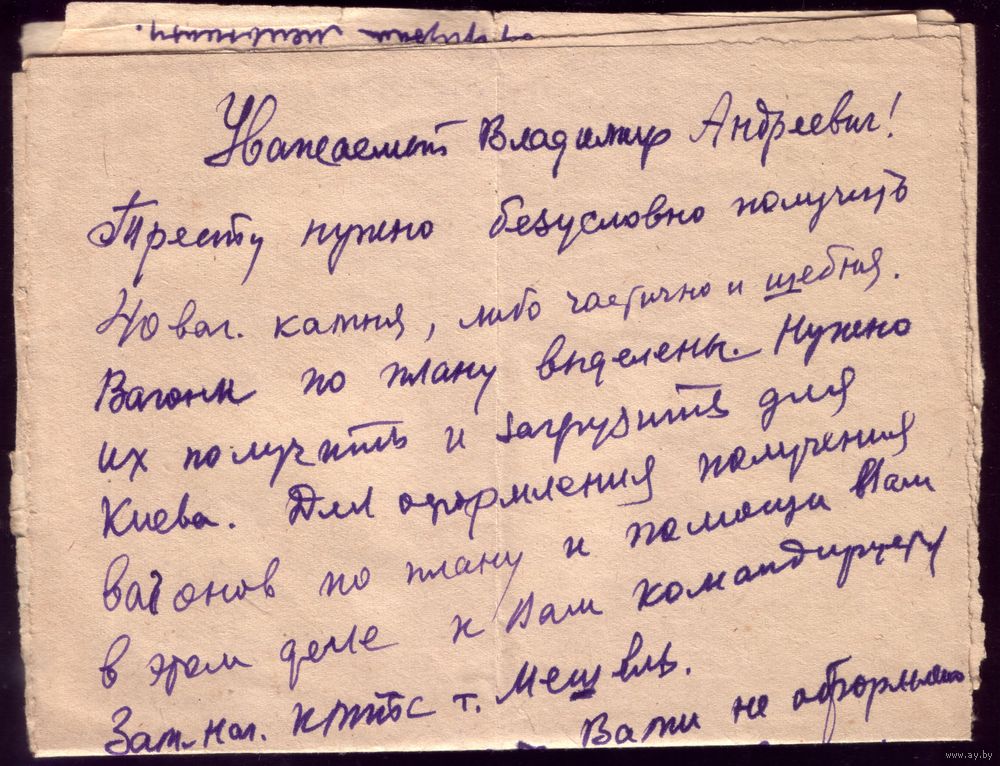 Уважаемый Владимир Андреевич!
Тресту нужно безусловно получить
40 ваг. камня, либо частично и щебня.
Вагоны по плану выделены. Нужно
их получить и загрузить для
Киева. Для оформления получения
вагонов по плану и помощи Вам
в этом деле к Вам командирую
Зам. нач. т.
Вами не оформлено
www.ay.by